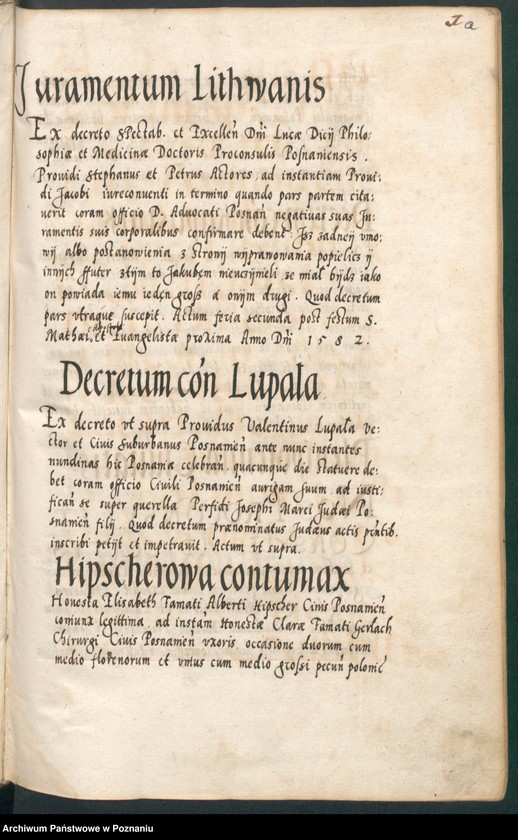 1a
Juramentum Lithwanis
Ex decreto Spectab. et Excellen Dni Lucae Dicij Philo-
sophiae et Medicinae Doctoris Proconsulis Posnaniensis.
Prouidi Stephanus et Petrus Actores, ad instantiam Proui-
di Jacobi iureconuenti in termino quando pars partem cita-
uerit coram officio D. Aduocati Posnan negatiuas suas Ju-
ramentis suis corporalibus confirmare debent. Jsz zadney vmo-
wy albo postanowienia z strony wyprawowania popielic y
innych ffuter ztym to Jakubem nieuczynieli ze mial bydz iako
on powiada iemu ieden grosz a onym drugi. Quod decretum
pars vtraque suscepit. Actum feria secunda post festum S.
Mathaei et Euangelistae proxima Anno Dni 1582.
Decretum con Lupala
Ex decreto vt supra Prouidus Valentinus Lupala ve-
ctor et Ciuis suburbanus Posnamen ante nunc instantes
nundinas hic Posnaniae celebran. quacunque die statuere de-
bet coram officio Ciuili Posnamen aurigam suum, ad iusti-
fican se super querella Perfidi Josephi Marci Judaei Po-
snamen filij. Quod decretum praenominatus Judaeus actis pntib.
inscribi petijt et impetrauit. Actum vt supra.
Hipscherowa contumax
Honesta Elisabeth Famati Alberti Hipscher Ciuis Posnamen
coniunx legittima, ad instan Honestae Clarae Famati Gerlach
Chirurgi Ciuis Posnamen vxoris, occasione duorum cum
medio florenorum et vnius cum medio grossi pecun polonic
Archiwum Państwowe w Poznaniu